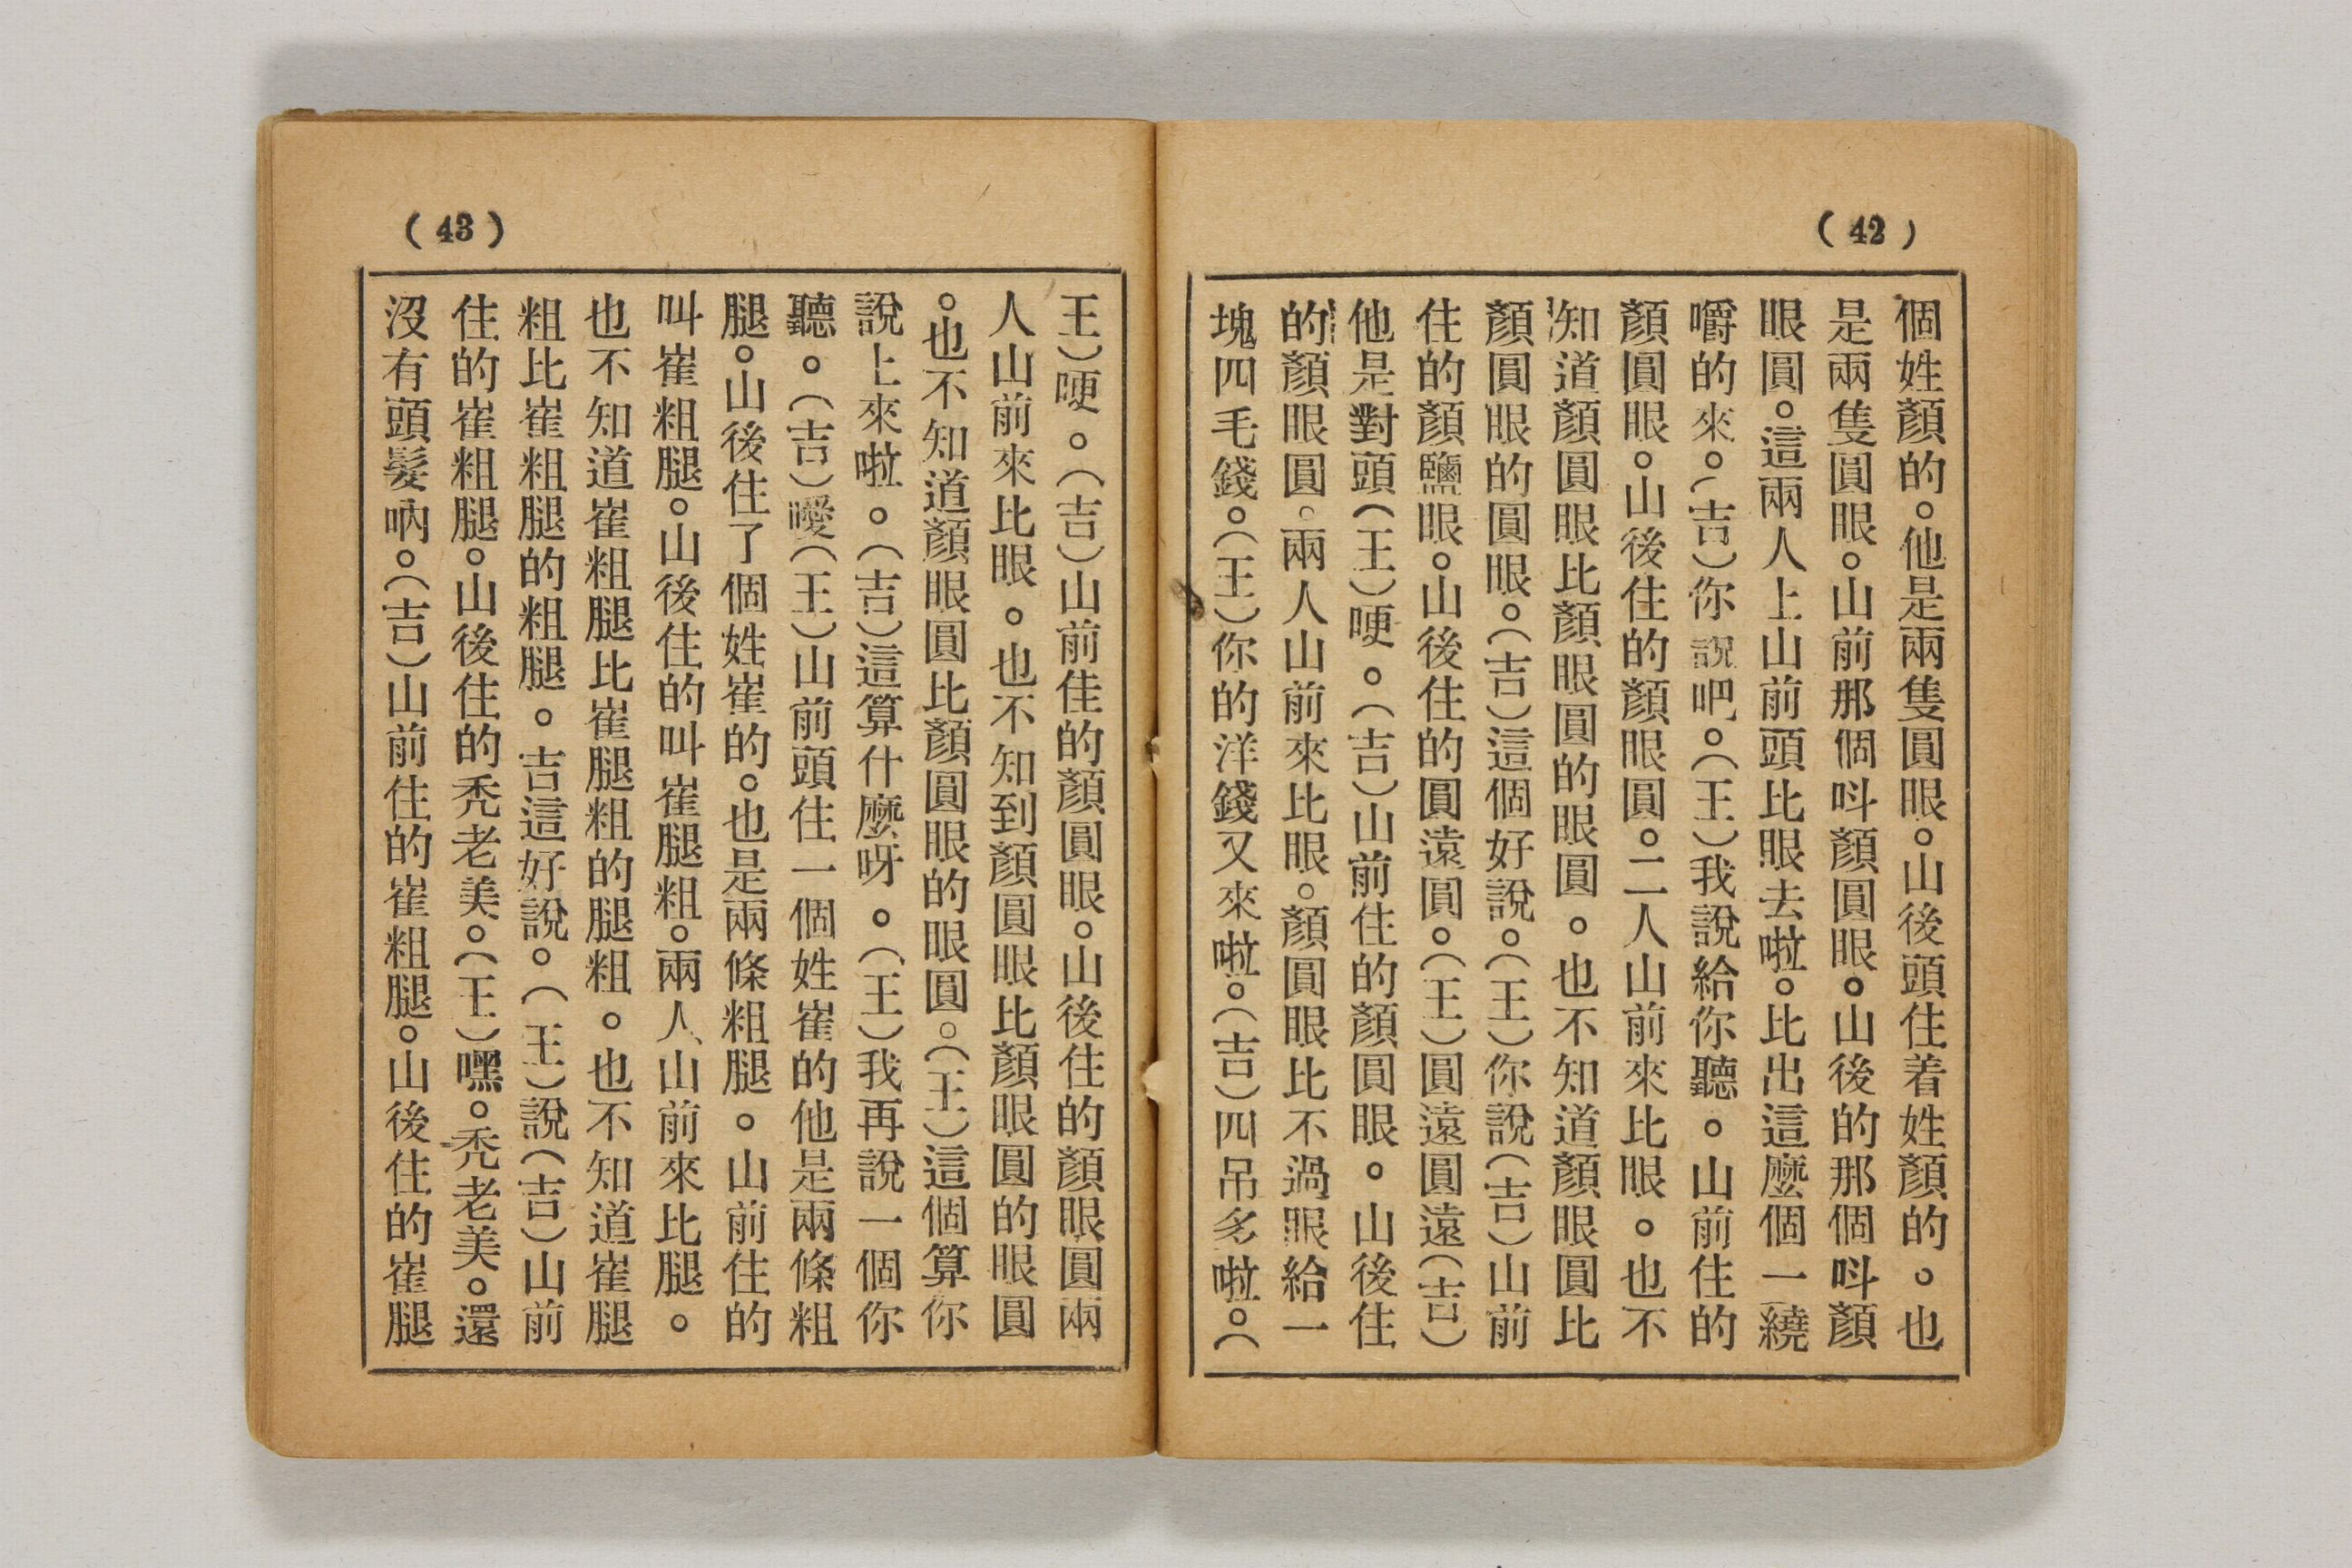 (42)
個姓顏的。他是兩隻圓眼。山後頭住着姓顏的。也
是兩隻圓眼。山前那個呌顏圓眼。山後的那個呌顏
眼圓。這兩人上山前頭比眼去啦。比出這麼個一繞
嚼的來。(吉)你說吧。(王)我說給你聽。山前住的
顏圓眼。山後住的顏眼圓。二人山前來比眼。也不
知道顏圓眼比顏眼圓的眼圓。也不知道顏眼圓比
顏圓眼的圓眼。(吉)這個好說。(王)你說(吉)山前
住的顏鹽眼。山後住的圓遠圓。(王)圓遠圓遠(吉)
他是對頭(王)哽。(吉)山前住的顏圓眼。山後住
的顏眼圓。兩人山前來比眼。顏圓眼比不過眼給一
塊四毛錢。(王)你的洋錢又來啦。(吉)四吊多啦。(
(43)
王)哽。(吉)山前住的顏圓眼。山後住的顏眼圓兩
人山前來比眼。也不知到顏圓眼比顏眼圓的眼圓
。也不知道顏眼圓比顏圓眼的眼圓。(王)這個算你
說上來啦。(吉)這算什麼呀。(王)我再說一個你
聽。(吉)噯(王)山前頭住一個姓崔的他是兩條粗
腿。山後住了個姓崔的。也是兩條粗腿。山前住的
叫崔粗腿。山後住的叫崔腿粗。兩人山前來比腿。
也不知道崔粗腿比崔腿粗的腿粗。也不知道崔腿
粗比崔粗腿的粗腿。吉這好說。(王)說(吉)山前
住的崔粗腿。山後住的禿老美。(王)嘿。禿老美。還
沒有頭髮吶。(吉)山前住的崔粗腿。山後住的崔腿